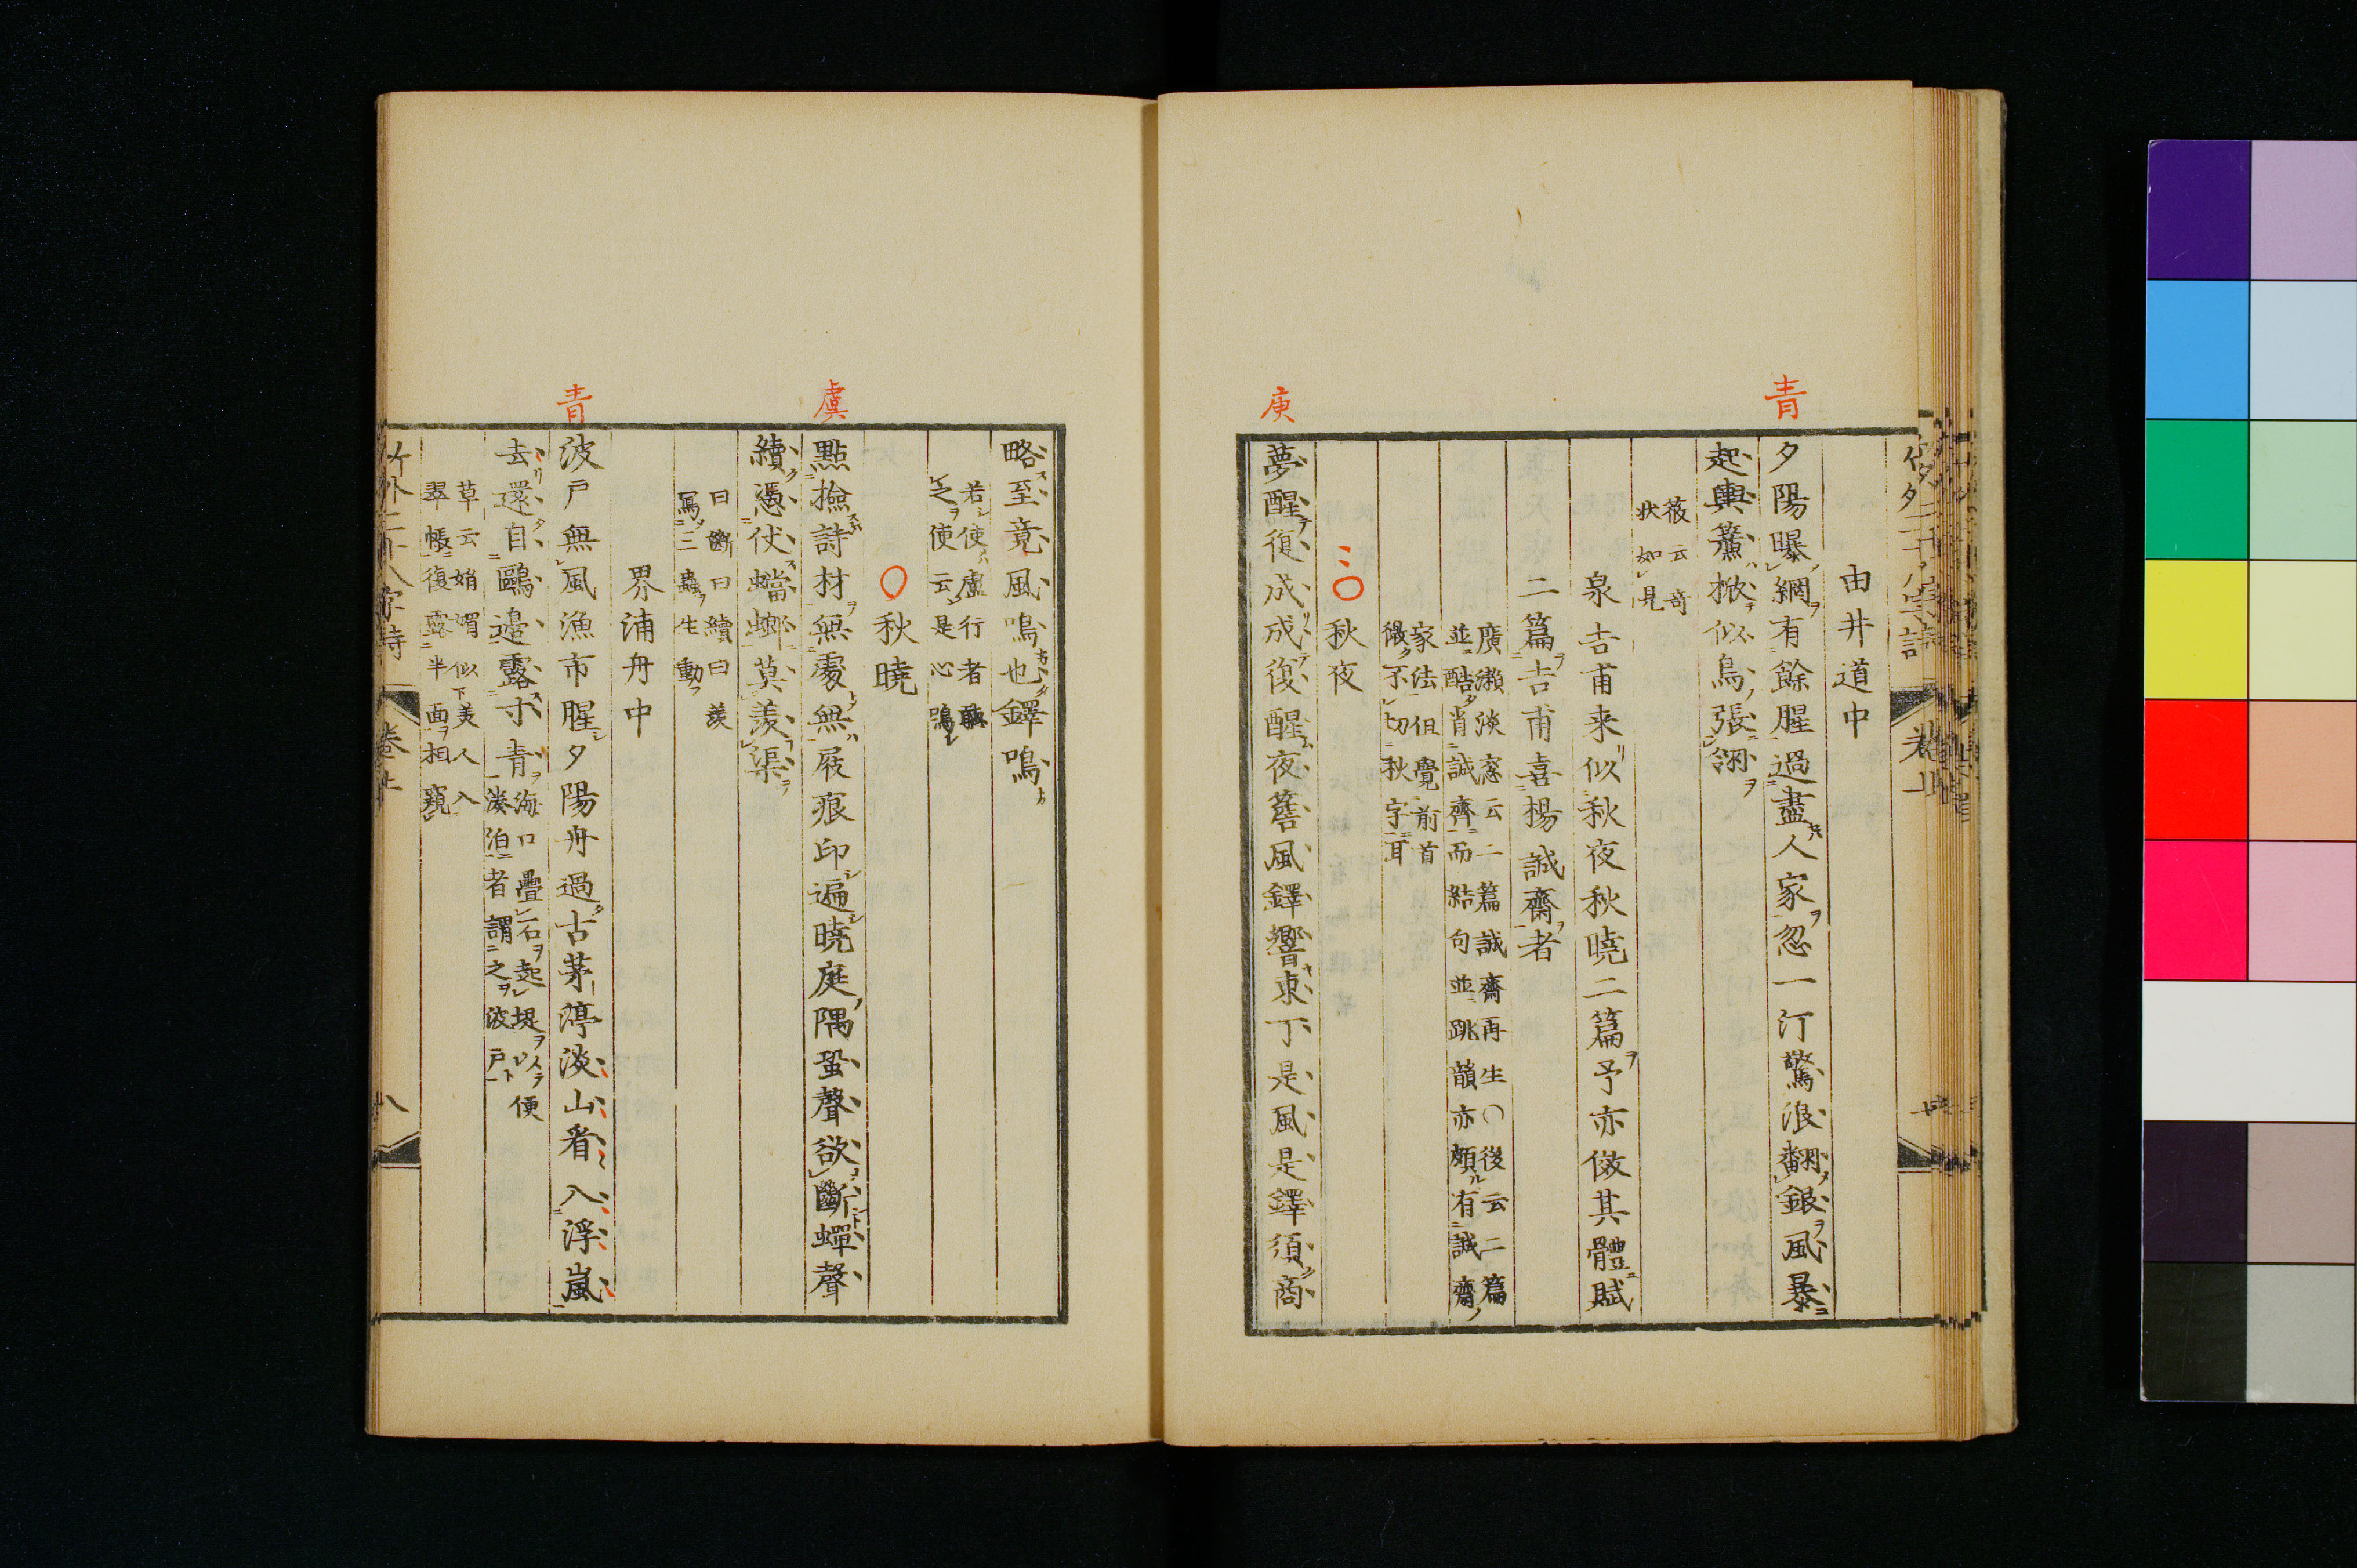 青
由井道中
夕陽曝網有餘腥過盡人家忽一汀驚浪翻銀風暴
起輿簾掀似鳥張翎
薇云奇
狀如見
泉吉甫来似秋夜秋曉二篇予亦傚其體賦
二篇吉甫喜楊誠齋者
廣瀨淡窓云二篇誠齋再生〇後云二篇
並酷肖誠齊而結句並跳韻亦頗有誠齋
家法但覺前首
微不切秋字耳
〇秋夜
庚
夢醒復成成復醒夜簷風鐸響東丁是風是鐸須商
略至竟風鳴也鐸鳴
若使盧行者聽
之使云是心鳴
〇秋曉
虞
點撿詩材無處無屐痕印遍曉庭隅蛩聲欲斷蟬聲
續憑伏蟷螂莫羨渠
曰斷曰續曰羨
寫三蟲生動
界浦舟中
青
波戸無風漁市腥夕陽舟過古茅渟淡山看入浮嵐
去還自鷗邉露寸青
海口疊石起堤以便
湊泊者謂之波戸
草云娟媚似美人入
翠帳復露半面相窺
竹外二十八字詩 卷上 八